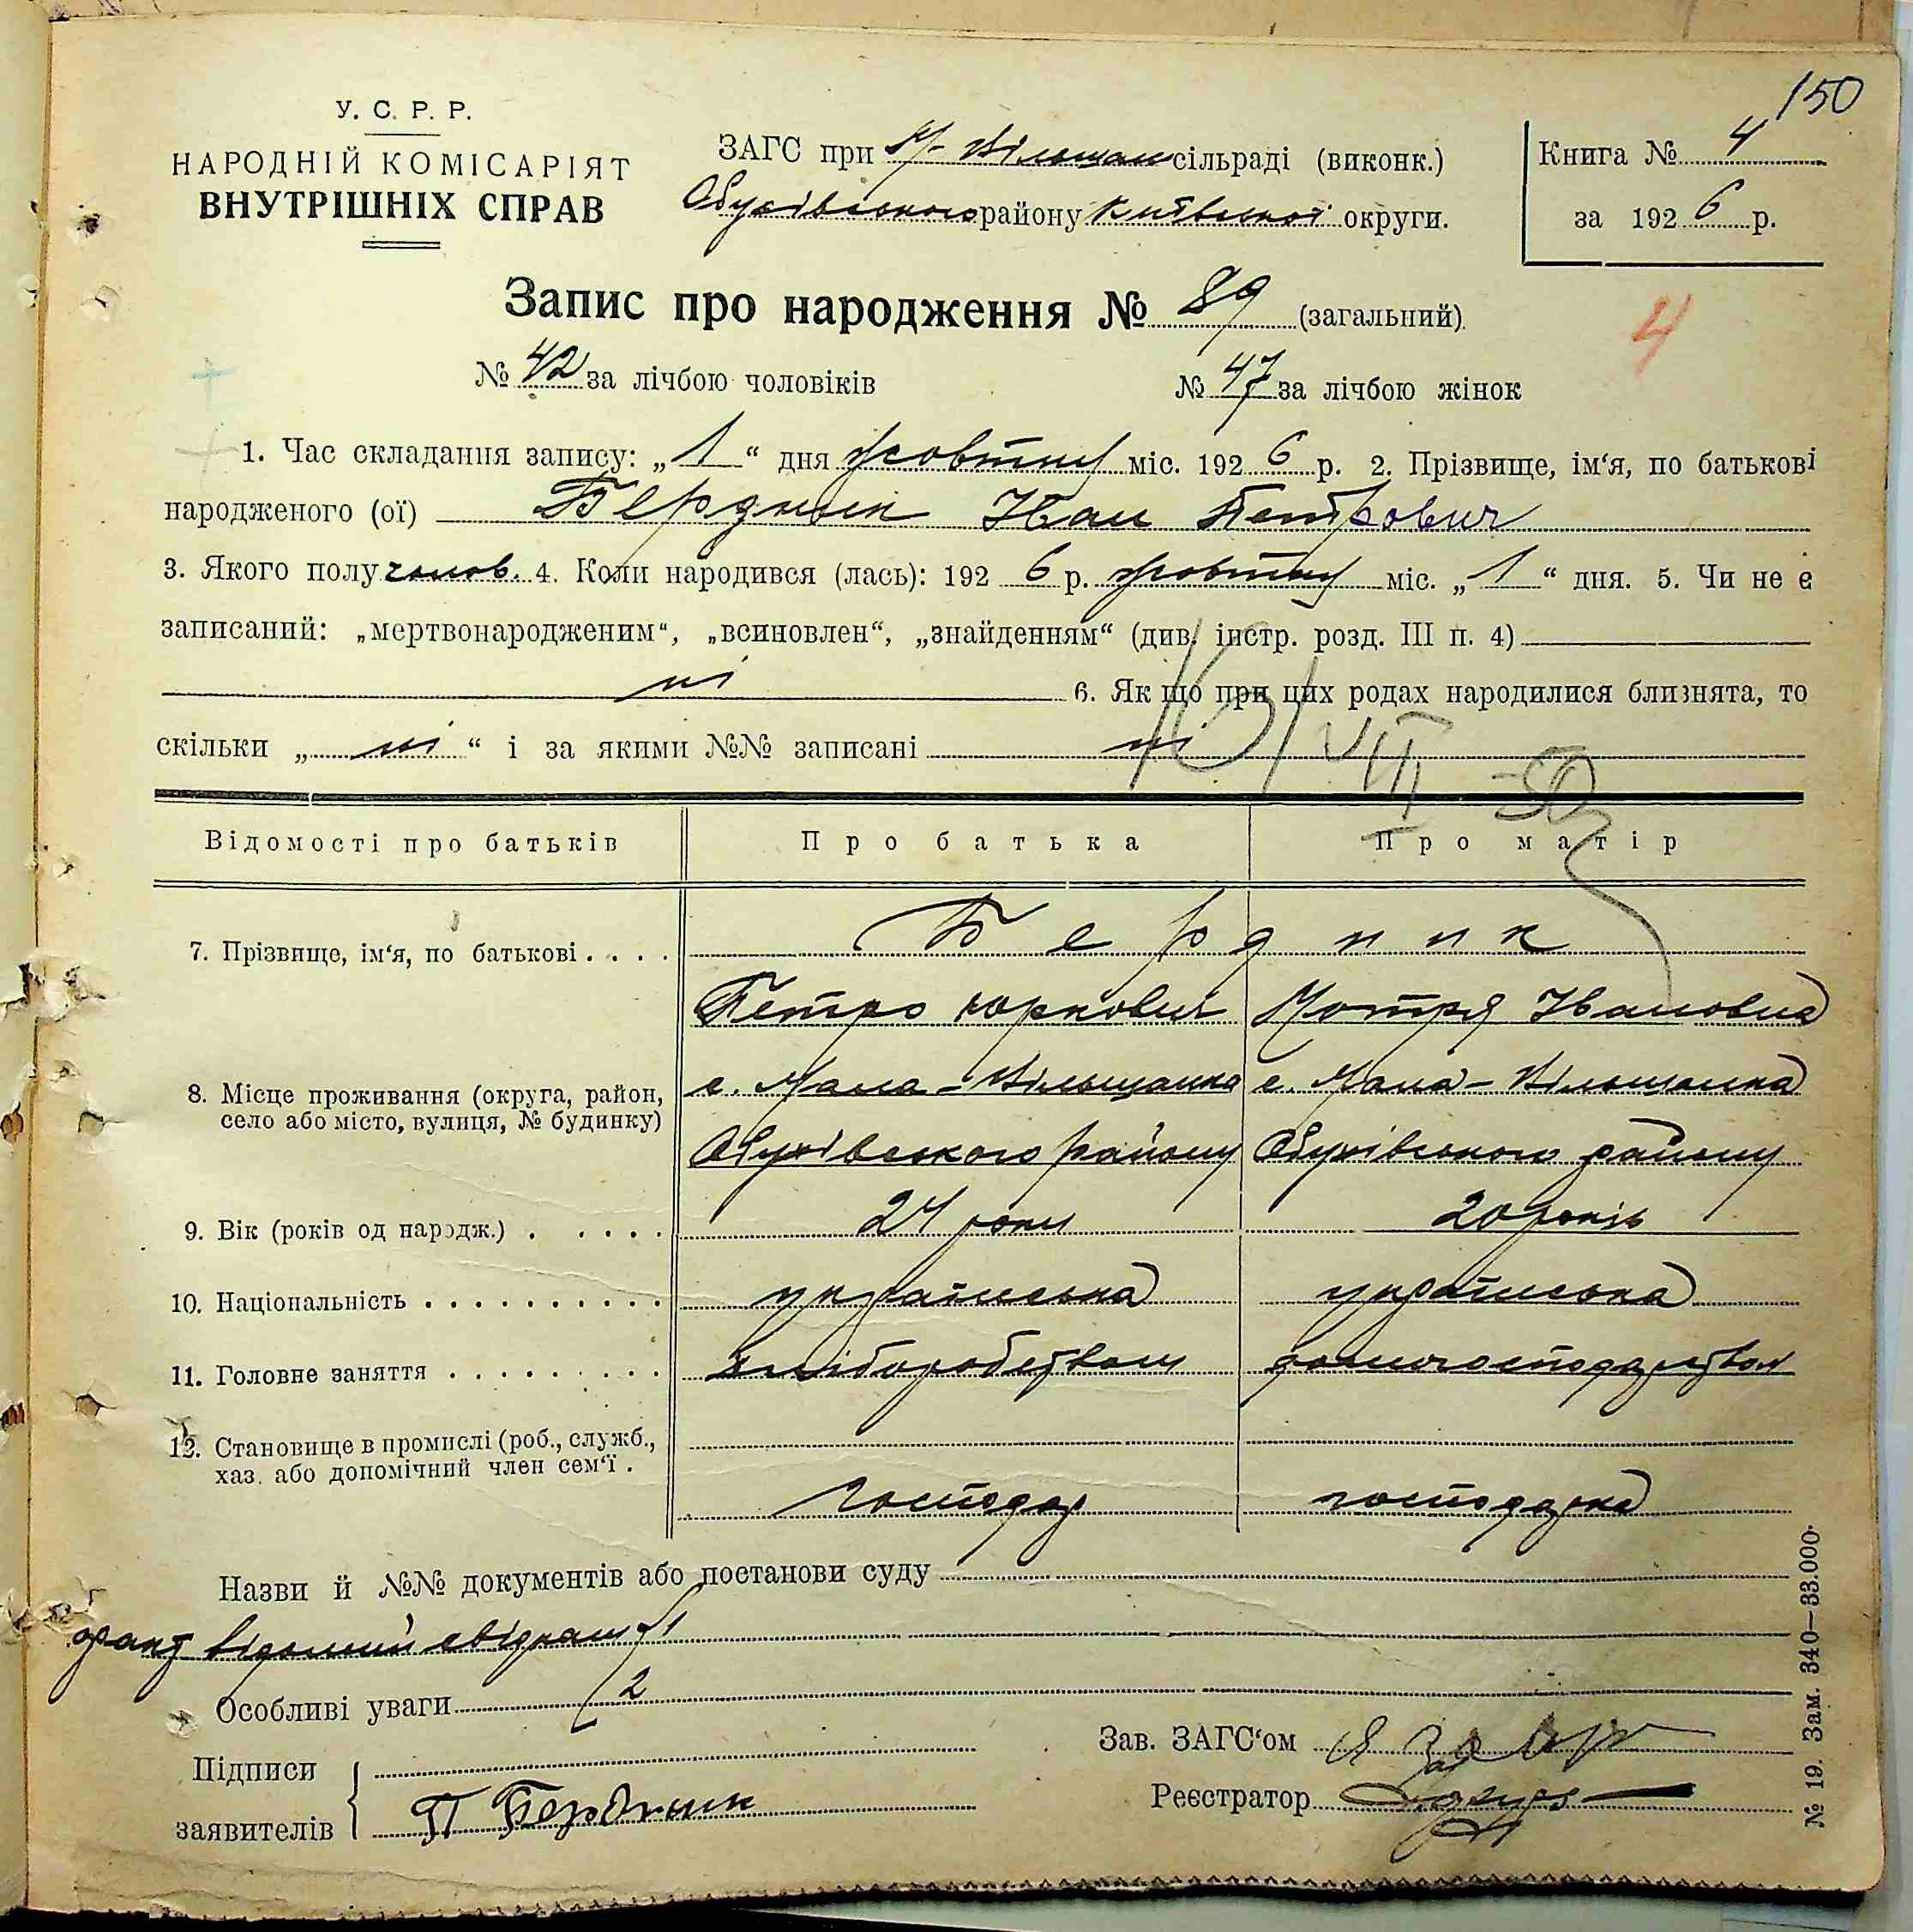 150
У. С. Р. Р.
НАРОДНІЙ КОМІСАРІЯТ
ВНУТРІШНІХ СПРАВ
ЗАГС при М-Вільшан сільраді (виконк.)
Обухівського району Київської округи.
Книга № 4
за 1926 р.
Запис про народження № 89 (загальний).
4
№ 42 за лічбою чоловіків № 47 за лічбою жінок
1. Час складання запису: „1“ дня жовтня міс. 1926 р. 2. Прізвище, ім‘я, по батькові
народженого (ої) Бердник Іван Петрович
3. Якого полу чолов. 4. Коли народився (лась): 1926 р. жовтня міс. „1“ дня. 5. Чи не є
записаний: „мертвонародженим“, „всиновлен“, „знайденням“ (див. інстр. розд. III п. 4)
ні 6. Як що при цих родах народилися близнята, то
скільки „ні“ і за якими №№ записані ні
VII - 50
Відомості про батьків Про батька Про матір
7. Прізвище, ім‘я, по батькові . . . . Бердник
Петро Юркович Мотря Івановна
8. Місце проживання (округа, район, с. Мала-Вільшанка с. Мала-Вільшанка
село або місто, вулиця, № будинку) Обухівського району Обухівського району
9. Вік (років од народж.) . . . . . 24 роки 20 років
10. Національність . . . . . . . . . . . українська українська
11. Головне заняття . . . . . . . . . хліборобством домогосподарством
12. Становище в промислі (роб., служб.,
хаз. або допомічний член сем‘ї . господар господарка
Назви й №№ документів або постанови суду
факт відомий свідкам 1
2
Особливі уваги
Підписи
заявителів П Бердник
Зав. ЗАГС‘ом
Реєстратор
№ 19. Зам. 340—33.000.